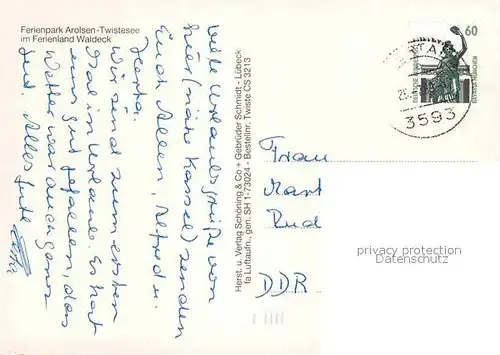 Ferienpark Arolsen-Twistesee
im Ferienland Waldeck
viele Urlaubsgrüße von
hier (nähe Kassel) senden
Euch Allen, Alfred u.
Herta.
Wir sind zum ersten
Mal im Urlaub. Es hat
uns gut gefallen, das
Wetter war auch ganz
gut. Alles Gute
Herst. u. Verlag Schöning & Co + Gebrüder Schmidt - Lübeck
fa Luftaufn., gen. SH 1-73024 - Bestellnr. Twiste CS 3213
60
DEUTSCHE BUNDESPOST
BAVARIA MÜNCHEN
3593
Frau
Mart
Rud
DDR
privacy protection
Datenschutz